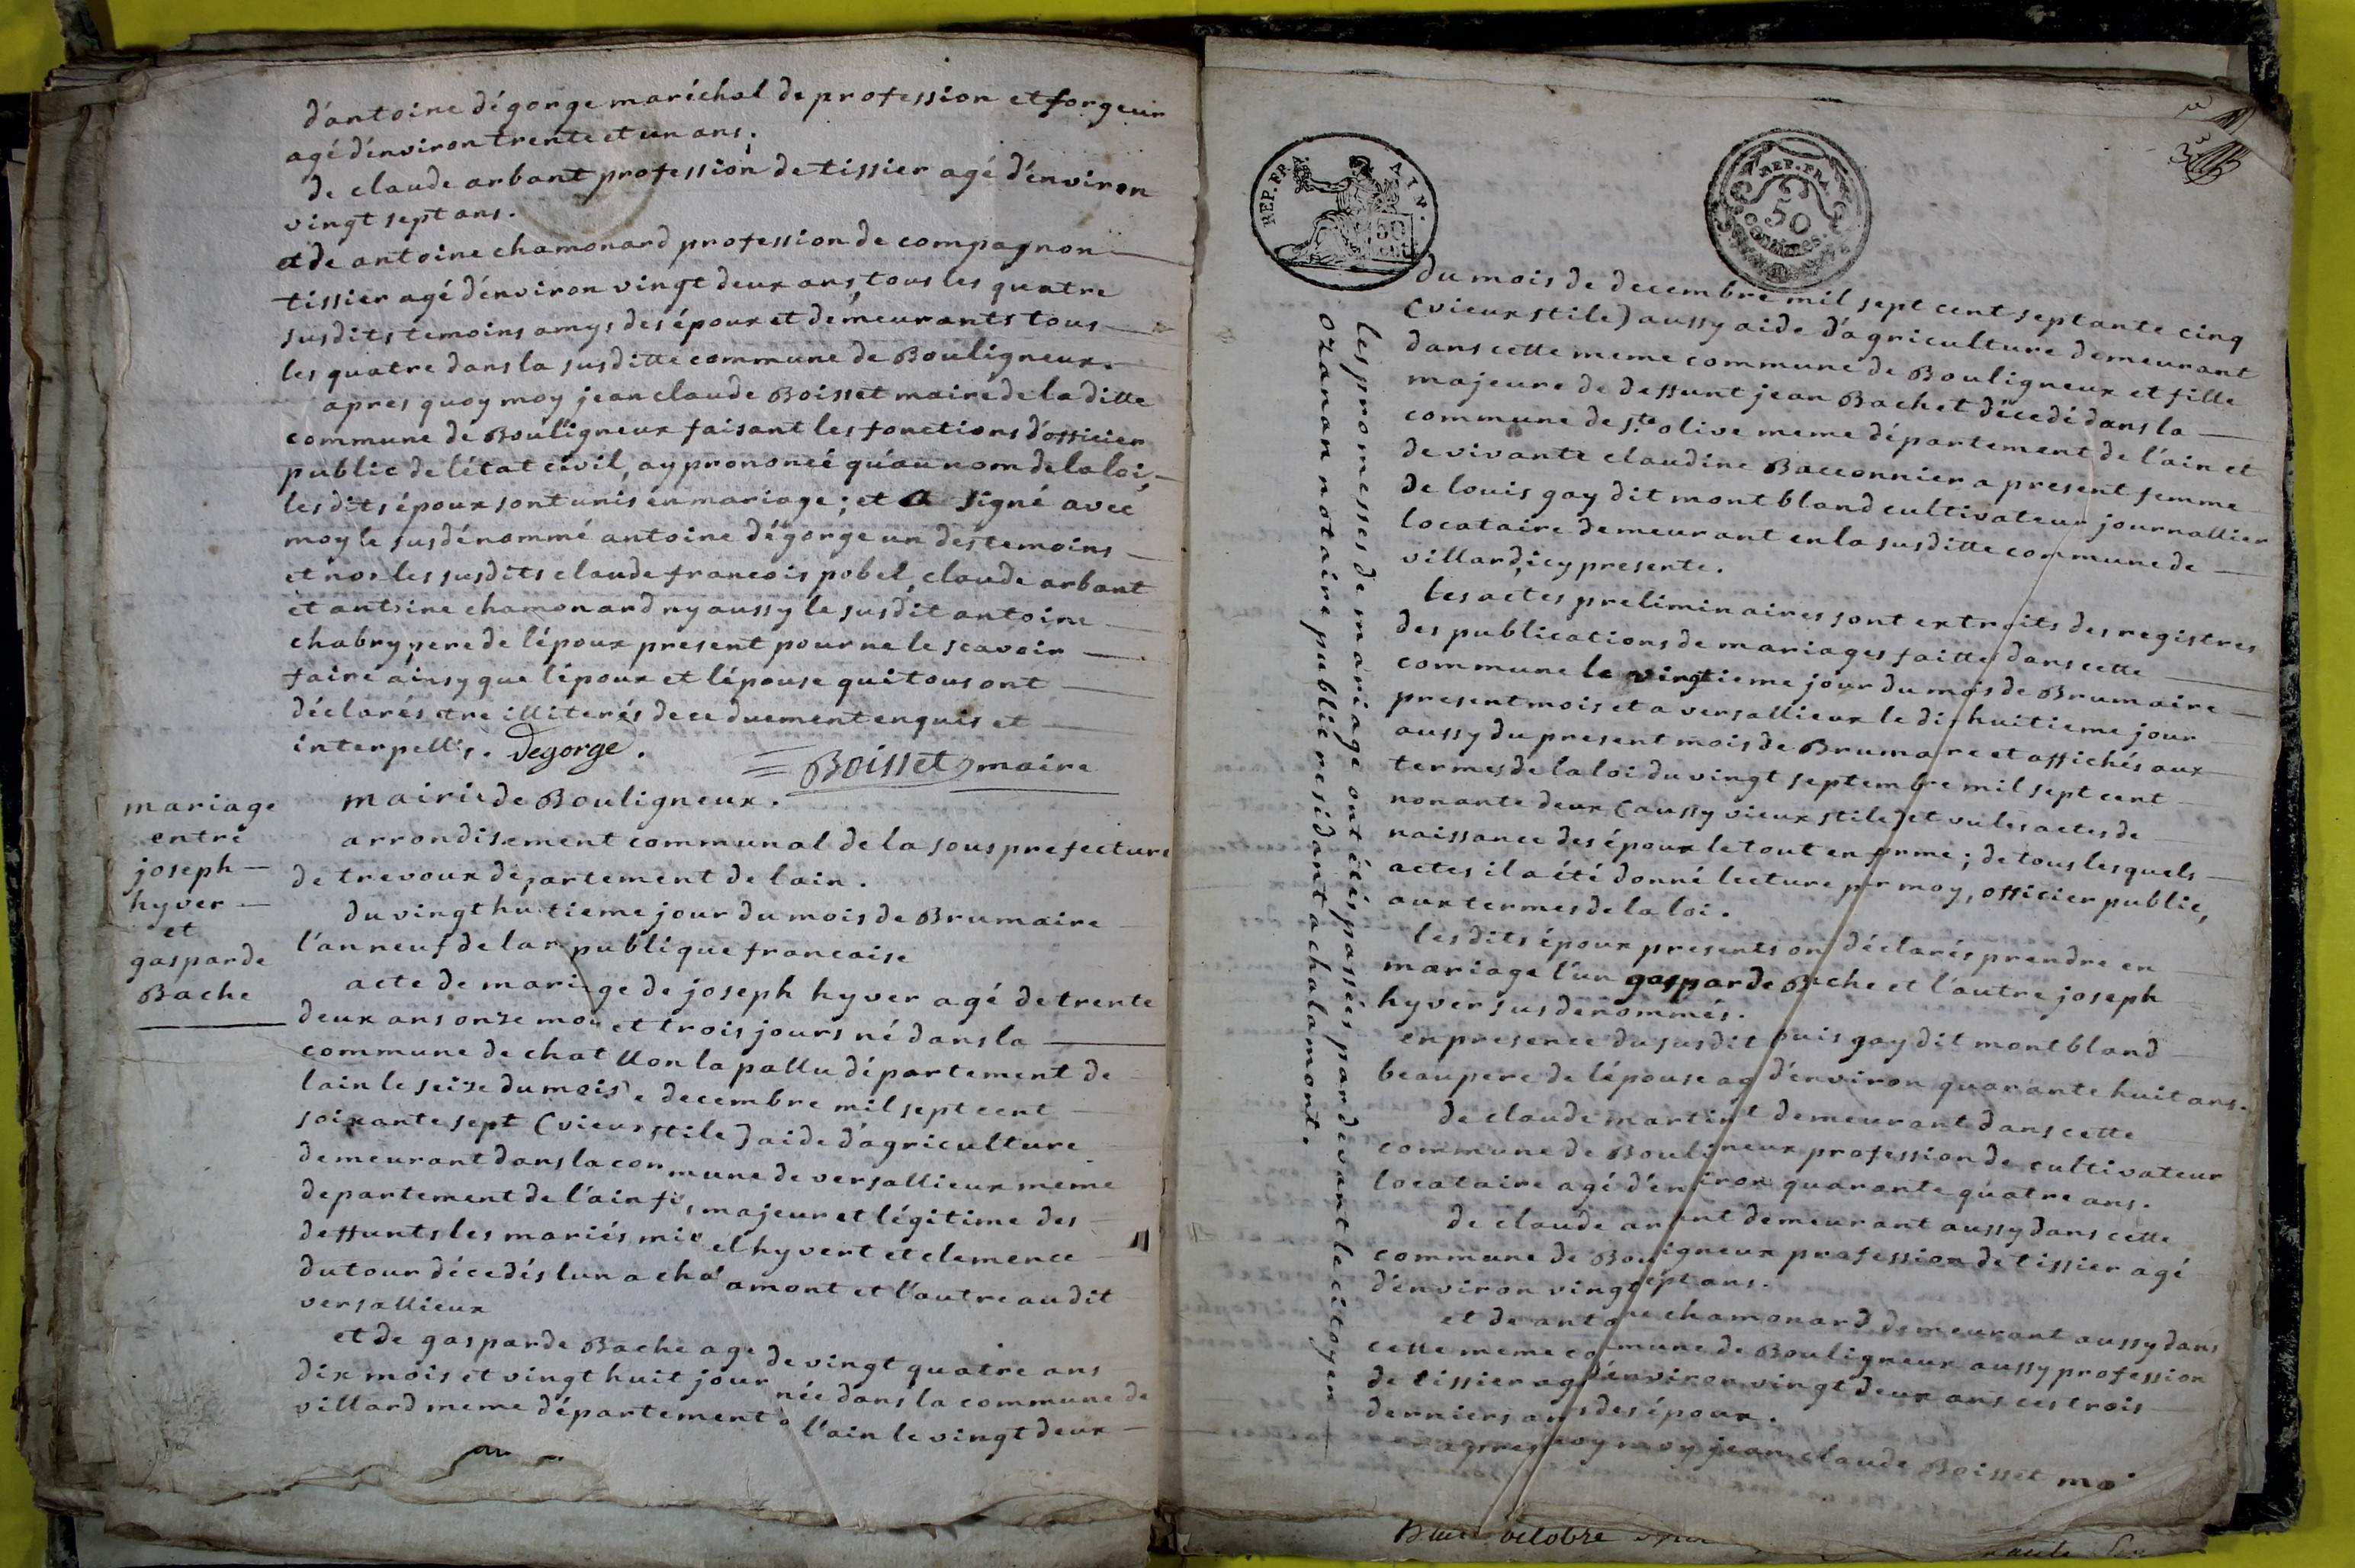 d'antoine dégorge maréchal de profession et forgeur
agé d'énviron trente et un ans;
de claude arbant profession de tissier agé d'énviron
vingt sept ans.
et de antoine chamonard profession de compagnon
tissier agé d'énviron vingt deux ans, tous les quatre
susdits temoins amys des époux et démeurants tous
les quatre dans la susditte commune de Bouligneux.
apres quoy moy jean claude Boisset maire de la ditte
commune de Bouligneux faisant les fonctions d'officier
public de l'état civil, ay prononcé qu'au nom de la loi,
les dits époux sont unis en mariage; et a signé avec
moy le susdénommé antoine dégorge un des temoins
et nos les susdits claude francois pobel, claude arbant
et antoine chamonard ny aussy le susdit antoine
chabry pere de l'époux présent pour ne le scavoir
faire ainsy que l'époux et l'épouse qui tous ont
déclarés etre illiterés de ce duement enquis et
interpellés. Degorge.
= Boisset maire
mariage
entre
joseph
hyver
et
gasparde
Bache
mairie de Bouligneux.
arrondisement communal de la sous prefecture
de trevoux département de lain.
du vingt huitieme jour du mois de Brumaire
l'an neuf de la republique francaise
acte de mariage de joseph hyver agé de trente
deux ans onze mois et trois jours né dans la
commune de chatillon la pallu département de
lain le seize du mois de decembre mil sept cent
soixante sept (vieux stile) aide d'agriculture
demeurant dans la commune de versallieux meme
departement de l'ain fils majeur et légitime des
deffunts les mariés michel hyvert et clemence
dutour décedés l'un a chalamont et l'autre au dit
versallieux
et de gasparde Bache agé de vingt quatre ans
dix mois et vingt huit jour née dans la commune de
villard meme département de l'ain le vingt deux
REP. FRA.
A I N.
50
CEN.
REP. FRA.
50
centimes.
du mois de decembre mil sept cent septante cinq
(vieux stile) aussy aide d'agriculture demeurant
dans cette meme commune de Bouligneux et fille
majeure de deffunt jean Bachet décedé dans la
commune de ste olive meme département de l'ain et
de vivante claudine Bacconnier a present femme
de louis gay dit montbland cultivateur journallier
locataire demeurant en la susditte commune de
villard, icy presente.
les actes preliminaires sont extraits des registres
des publications de mariages faitte dans cette
commune le vingtieme jour du mois de Brumaire
present mois et a versallieux le dix huitieme jour
aussy du present mois de Brumaire et affichés aux
termes de la loi du vingt septembre mil sept cent
nonante deux (aussy vieux stile) et vu les actes de
naissance des époux le tout en forme; de tous lesquels
actes il a été donné lecture par moy, officier public,
aux termes de la loi.
les dits époux presents ont déclarés prendre en
mariage l'un gasparde Bache et l'autre joseph
hyver susdenommés.
en presence du susdit louis gay dit montbland
beaupere de l'épouse agé d'énviron quarante huit ans.
de claude martin demeurant dans cette
commune de Bouligneux profession de cultivateur
locataire agé d'énviron quarante quatre ans.
de claude arbant demeurant aussy dans cette
commune de Bouligneux profession de tissier agé
d'énviron vingt sept ans.
et de antoine chamonard demeurant aussy dans
cette meme commune de Bouligneux aussy profession
de tissier agé d'énviron vingt deux ans ces trois
derniers amis des époux.
apres quoy moy jean claude Boisset mai
les promesses de mariage ont étés passés par devant le citoyen
ozanan notaire public residant a chalamont.
octobre